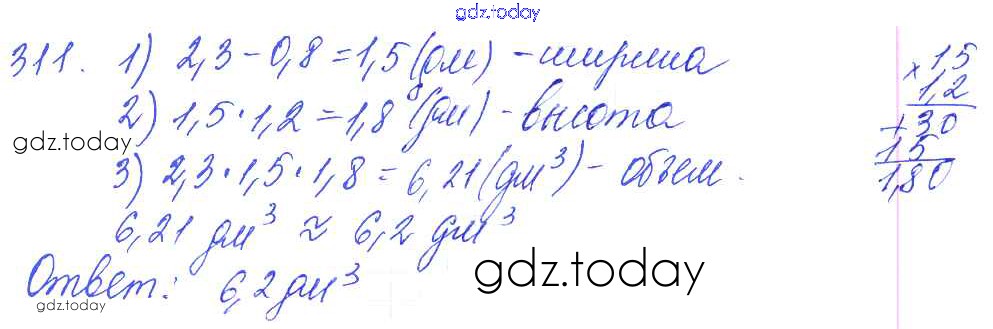 gdz.today
311. 1) 2,3 - 0,8 = 1,5 (дм) - ширина
2) 1,5 · 1,2 = 1,8 (дм) - высота
gdz.today
3) 2,3 · 1,5 · 1,8 = 6,21 (дм³) - объем.
6,21 дм³ ≈ 6,2 дм³
Ответ: 6,2 дм³
gdz.today
gdz.today
× 15
1,2
+ 30
15
1,80